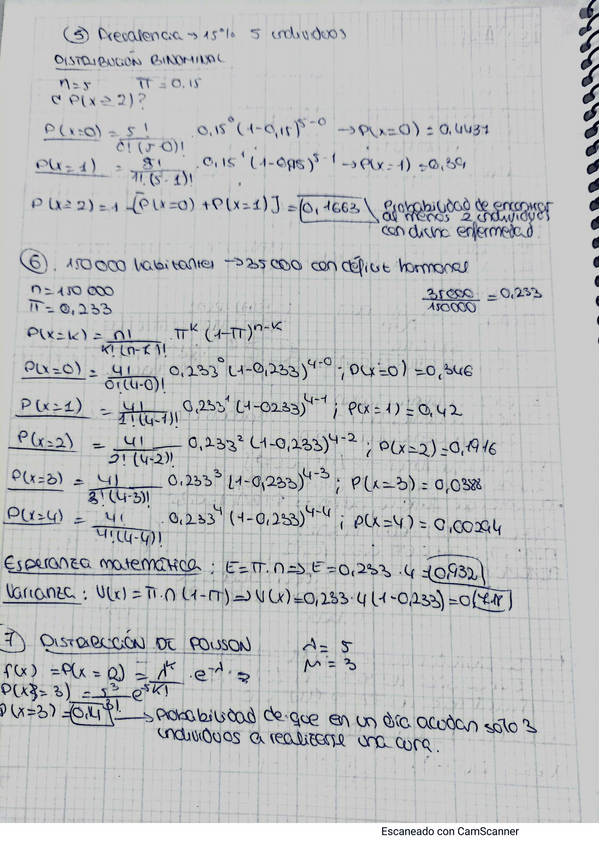 ⑤ Prevalencia → 15% 5 individuos
DISTRIBUCIÓN BINOMINAL
n=5 π=0,15
c P(x≥2)?
P(x=0) = 5!/0!(5-0)! · 0,15⁰ (1-0,15)⁵⁻⁰ → P(x=0) = 0,4437
P(x=1) = 5!/1!(5-1)! · 0,15¹ (1-0,15)⁵⁻¹ → P(x=1) = 0,39
P(x≥2) = 1 - [P(x=0) + P(x=1)] = 0,1663 Probabilidad de encontrar
al menos 2 individuos
con dicha enfermedad.
⑥. 150000 habitantes → 35000 con déficit hormonal
n=150 000 35000/150000 = 0,233
π=0,233
P(x=k) = n!/k!(n-k)! · π^k (1-π)^n-k
P(x=0) = 4!/0!(4-0)! 0,233⁰ (1-0,233)⁴⁻⁰ ; P(x=0) = 0,346
P(x=1) = 4!/1!(4-1)! 0,233¹ (1-0233)⁴⁻¹ ; P(x=1) = 0,42
P(x=2) = 4!/2!(4-2)! 0,233² (1-0,233)⁴⁻² ; P(x=2) = 0,1916
P(x=3) = 4!/3!(4-3)! 0,233³ (1-0,233)⁴⁻³ ; P(x=3) = 0,0388
P(x=4) = 4!/4!(4-4)! 0,233⁴ (1-0,233)⁴⁻⁴ ; P(x=4) = 0,00294
Esperanza matemática : E=π·n => E=0,233·4=0,932
Varianza : V(x)=π·n(1-π) => V(x)=0,233·4(1-0,233)=0,718
7 DISTRIBUCIÓN DE POISSON λ = 5
M = 3
f(x) = P(x = ) = λ^k/k! · e^-λ
P(x = 3) = 5³/3! e
P(x=3) = 0,14 → Probabilidad de que en un día acudan solo 3
individuos a realizarse una cura.
Escaneado con CamScanner